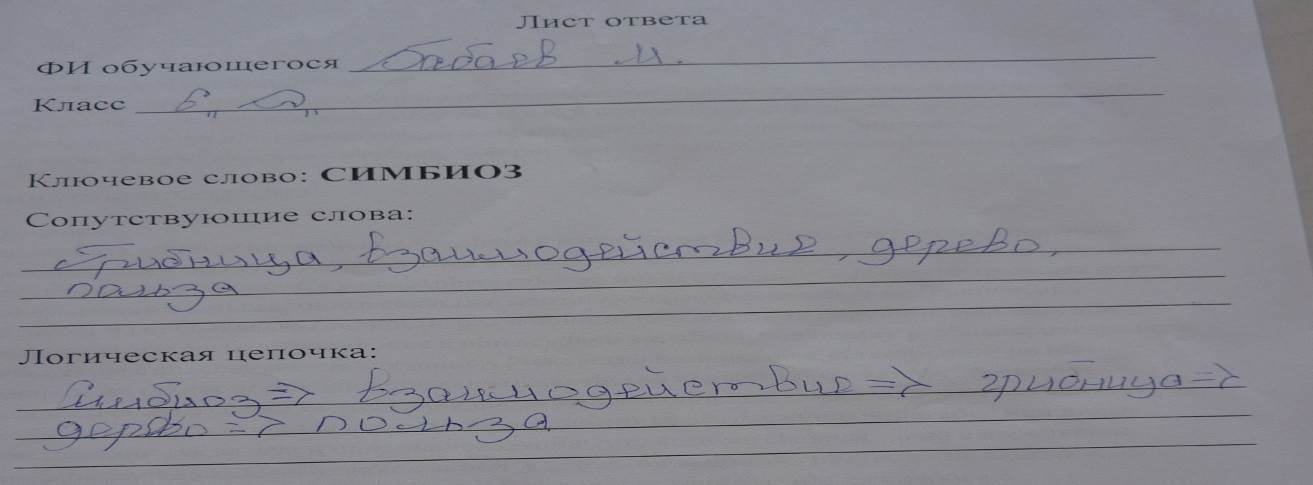 Лист ответа
ФИ обучающегося Бабаев И.
Класс 6 „ „
Ключевое слово: СИМБИОЗ
Сопутствующие слова:
Грибница, взаимодействие, дерево,
польза
Логическая цепочка:
Симбиоз => взаимодействие => грибница =>
дерево => польза